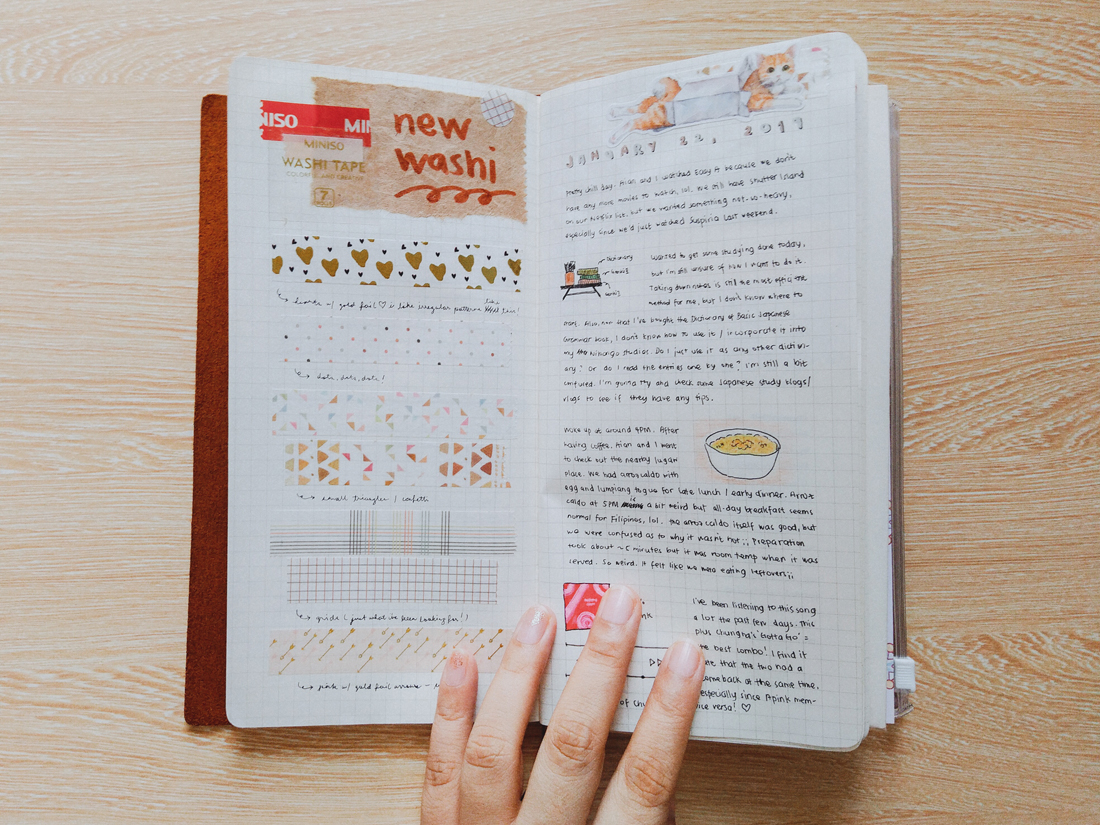 NISO
MI
MINISO
WASHI TAPE
7
new
washi
hearts w/ gold foil ♡ is like irregular patterns
dots, dots, dots!
small triangles / confetti
grids ( just what i've been looking for! )
pink w/ gold foil arrows -
JANUARY 22, 2019
Pretty chill day. Aian and I watched Easy A because we don't
have any more movies to watch, lol. We still have Shutter Island
on our Netflix list, but we wanted something not-so-heavy,
especially since we'd just watched Suspiria last weekend.
dictionary
genki
Wanted to get some studying done today,
but I'm still unsure of how I want to do it.
Taking down notes is still the most
method for me, but I don't know where to
start. Also, now that I've bought the Dictionary of Basic Japanese
Grammar book, I don't know how to use it / incorporate it into
my Nihongo studies. Do I just use it as any other diction-
ary? Or do I read the entries one by one? I'm still a bit
confused. I'm gonna try and check some Japanese study blogs/
vlogs to see if they have any tips.
Woke up at around 4PM. After
having coffee, Aian and I went
to check out the nearby lugaw
place. We had arroz caldo with
egg and lumpiang togue for late lunch / early dinner. Arroz
caldo at 5PM is a bit weird but all-day breakfast seems
normal for Filipinos, lol. The arroz caldo itself was good, but
we were confused as to why it wasn't hot ;; Preparation
took about ~5 minutes but it was room temp when it was
served. So weird. It felt like we were eating leftovers ;;
nk
I've been listening to this song
a lot the past few days. This
plus Chungha's 'Gotta Go' =
the best combo! I find it
that the two had a
comeback at the same time,
especially since Apink mem-
of Ch
vice versa! ♡